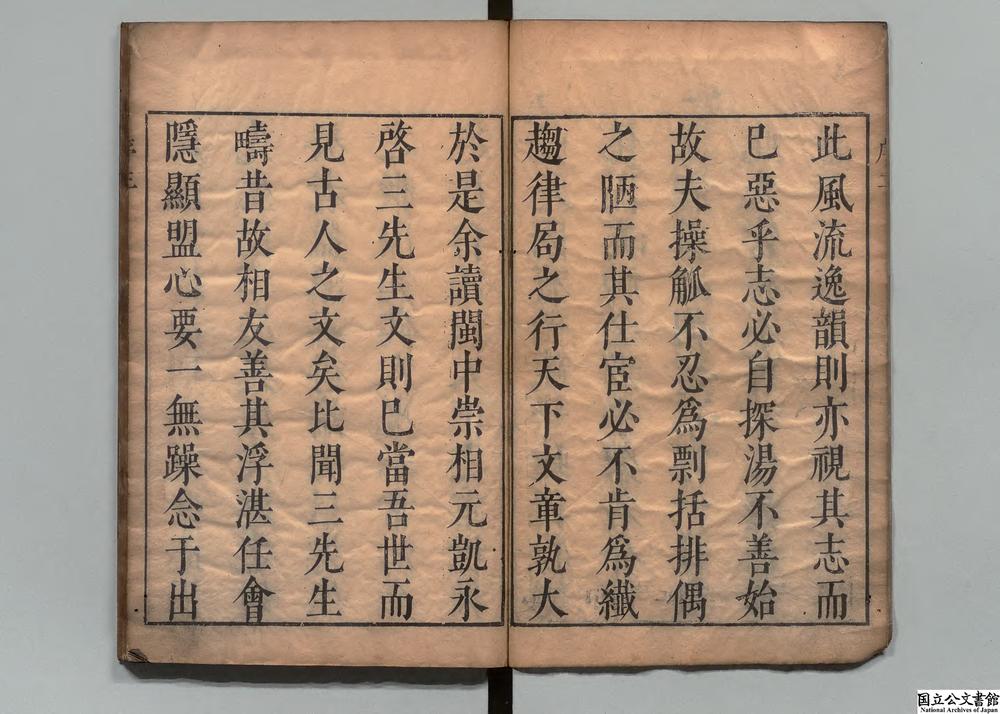 此風流逸韻則亦視其志而
已惡乎志必自探湯不善始
故夫操觚不忍爲剽括排偶
之陋而其仕宦必不肯爲纖
趨律局之行天下文章孰大
於是余讀閩中崇相元凱永
啓三先生文則已當吾世而
見古人之文矣比聞三先生
疇昔故相友善其浮湛任會
隱顯盟心要一無躁念于出
国立公文書館
National Archives of Japan